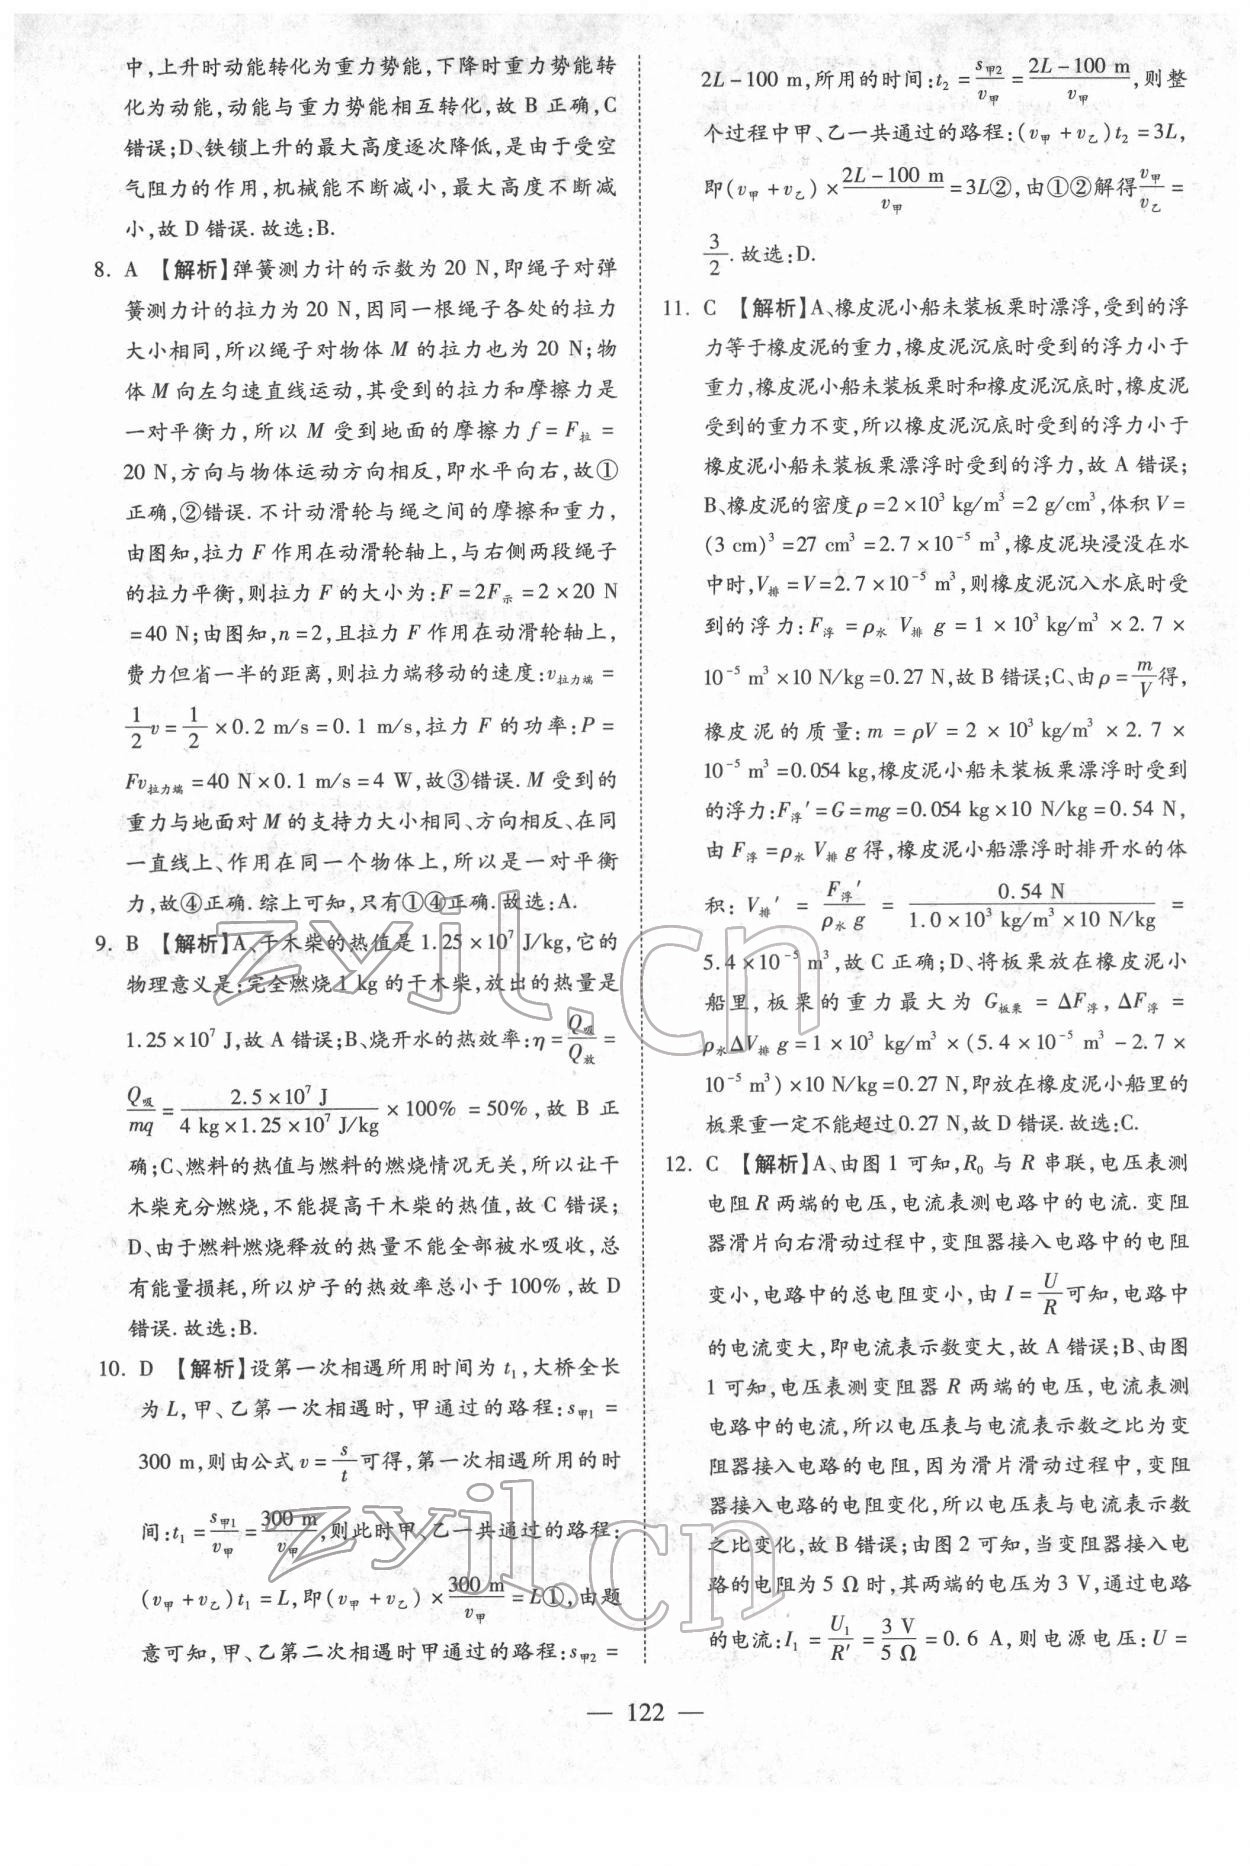 中,上升时动能转化为重力势能,下降时重力势能转
化为动能,动能与重力势能相互转化,故 B 正确,C
错误;D、铁锁上升的最大高度逐次降低,是由于受空
气阻力的作用,机械能不断减小,最大高度不断减
小,故 D 错误. 故选:B.
8. A 【解析】弹簧测力计的示数为 20 N,即绳子对弹
簧测力计的拉力为 20 N,因同一根绳子各处的拉力
大小相同,所以绳子对物体 M 的拉力也为 20 N;物
体 M 向左匀速直线运动,其受到的拉力和摩擦力是
一对平衡力,所以 M 受到地面的摩擦力 f = F拉 =
20 N,方向与物体运动方向相反,即水平向右,故①
正确,②错误. 不计动滑轮与绳之间的摩擦和重力,
由图知,拉力 F 作用在动滑轮轴上,与右侧两段绳子
的拉力平衡,则拉力 F 的大小为:F = 2F示 = 2 × 20 N
= 40 N;由图知,n = 2,且拉力 F 作用在动滑轮轴上,
费力但省一半的距离,则拉力端移动的速度:v拉力端 =
1/2 v = 1/2 × 0.2 m/s = 0.1 m/s,拉力 F 的功率:P =
Fv拉力端 = 40 N × 0.1 m/s = 4 W,故③错误. M 受到的
重力与地面对 M 的支持力大小相同、方向相反、在同
一直线上、作用在同一个物体上,所以是一对平衡
力,故④正确. 综上可知,只有①④正确. 故选:A.
9. B 【解析】A、干木柴的热值是 1.25 × 10⁷ J/kg,它的
物理意义是:完全燃烧 1 kg 的干木柴,放出的热量是
1.25 × 10⁷ J,故 A 错误;B、烧开水的热效率:η = Q吸/Q放 =
Q吸/mq = 2.5 × 10⁷ J/(4 kg × 1.25 × 10⁷ J/kg) × 100% = 50%,故 B 正
确;C、燃料的热值与燃料的燃烧情况无关,所以让干
木柴充分燃烧,不能提高干木柴的热值,故 C 错误;
D、由于燃料燃烧释放的热量不能全部被水吸收,总
有能量损耗,所以炉子的热效率总小于 100%,故 D
错误. 故选:B.
10. D 【解析】设第一次相遇所用时间为 t₁,大桥全长
为 L,甲、乙第一次相遇时,甲通过的路程:s甲1 =
300 m,则由公式 v = s/t 可得,第一次相遇所用的时
间:t₁ = s甲1/v甲 = 300 m/v甲,则此时甲、乙一共通过的路程:
(v甲 + v乙)t₁ = L,即(v甲 + v乙) × 300 m/v甲 = L①,由题
意可知,甲、乙第二次相遇时甲通过的路程:s甲2 =
2L - 100 m,所用的时间:t₂ = s甲2/v甲 = (2L - 100 m)/v甲,则整
个过程中甲、乙一共通过的路程:(v甲 + v乙)t₂ = 3L,
即(v甲 + v乙) × (2L - 100 m)/v甲 = 3L②,由①②解得 v甲/v乙 =
3/2. 故选:D.
11. C 【解析】A、橡皮泥小船未装板栗时漂浮,受到的浮
力等于橡皮泥的重力,橡皮泥沉底时受到的浮力小于
重力,橡皮泥小船未装板栗时和橡皮泥沉底时,橡皮泥
受到的重力不变,所以橡皮泥沉底时受到的浮力小于
橡皮泥小船未装板栗漂浮时受到的浮力,故 A 错误;
B、橡皮泥的密度 ρ = 2 × 10³ kg/m³ = 2 g/cm³,体积 V =
(3 cm)³ = 27 cm³ = 2.7 × 10⁻⁵ m³,橡皮泥块浸没在水
中时,V排 = V = 2.7 × 10⁻⁵ m³,则橡皮泥沉入水底时受
到的浮力:F浮 = ρ水 V排 g = 1 × 10³ kg/m³ × 2.7 ×
10⁻⁵ m³ × 10 N/kg = 0.27 N,故 B 错误;C、由 ρ = m/V 得,
橡皮泥的质量:m = ρV = 2 × 10³ kg/m³ × 2.7 ×
10⁻⁵ m³ = 0.054 kg,橡皮泥小船未装板栗漂浮时受到
的浮力:F浮′ = G = mg = 0.054 kg × 10 N/kg = 0.54 N,
由 F浮 = ρ水 V排 g 得,橡皮泥小船漂浮时排开水的体
积:V排′ = F浮′/(ρ水 g) = 0.54 N/(1.0 × 10³ kg/m³ × 10 N/kg) =
5.4 × 10⁻⁵ m³,故 C 正确;D、将板栗放在橡皮泥小
船里,板栗的重力最大为 G板栗 = ΔF浮,ΔF浮 =
ρ水ΔV排 g = 1 × 10³ kg/m³ × (5.4 × 10⁻⁵ m³ - 2.7 ×
10⁻⁵ m³) × 10 N/kg = 0.27 N,即放在橡皮泥小船里的
板栗重一定不能超过 0.27 N,故 D 错误. 故选:C.
12. C 【解析】A、由图 1 可知,R₀ 与 R 串联,电压表测
电阻 R 两端的电压,电流表测电路中的电流. 变阻
器滑片向右滑动过程中,变阻器接入电路中的电阻
变小,电路中的总电阻变小,由 I = U/R 可知,电路中
的电流变大,即电流表示数变大,故 A 错误;B、由图
1 可知,电压表测变阻器 R 两端的电压,电流表测
电路中的电流,所以电压表与电流表示数之比为变
阻器接入电路的电阻,因为滑片滑动过程中,变阻
器接入电路的电阻变化,所以电压表与电流表示数
之比变化,故 B 错误;由图 2 可知,当变阻器接入电
路的电阻为 5 Ω 时,其两端的电压为 3 V,通过电路
的电流:I₁ = U₁/R′ = 3 V/5 Ω = 0.6 A,则电源电压:U =
— 122 —
zyjl.cn
zyjl.cn